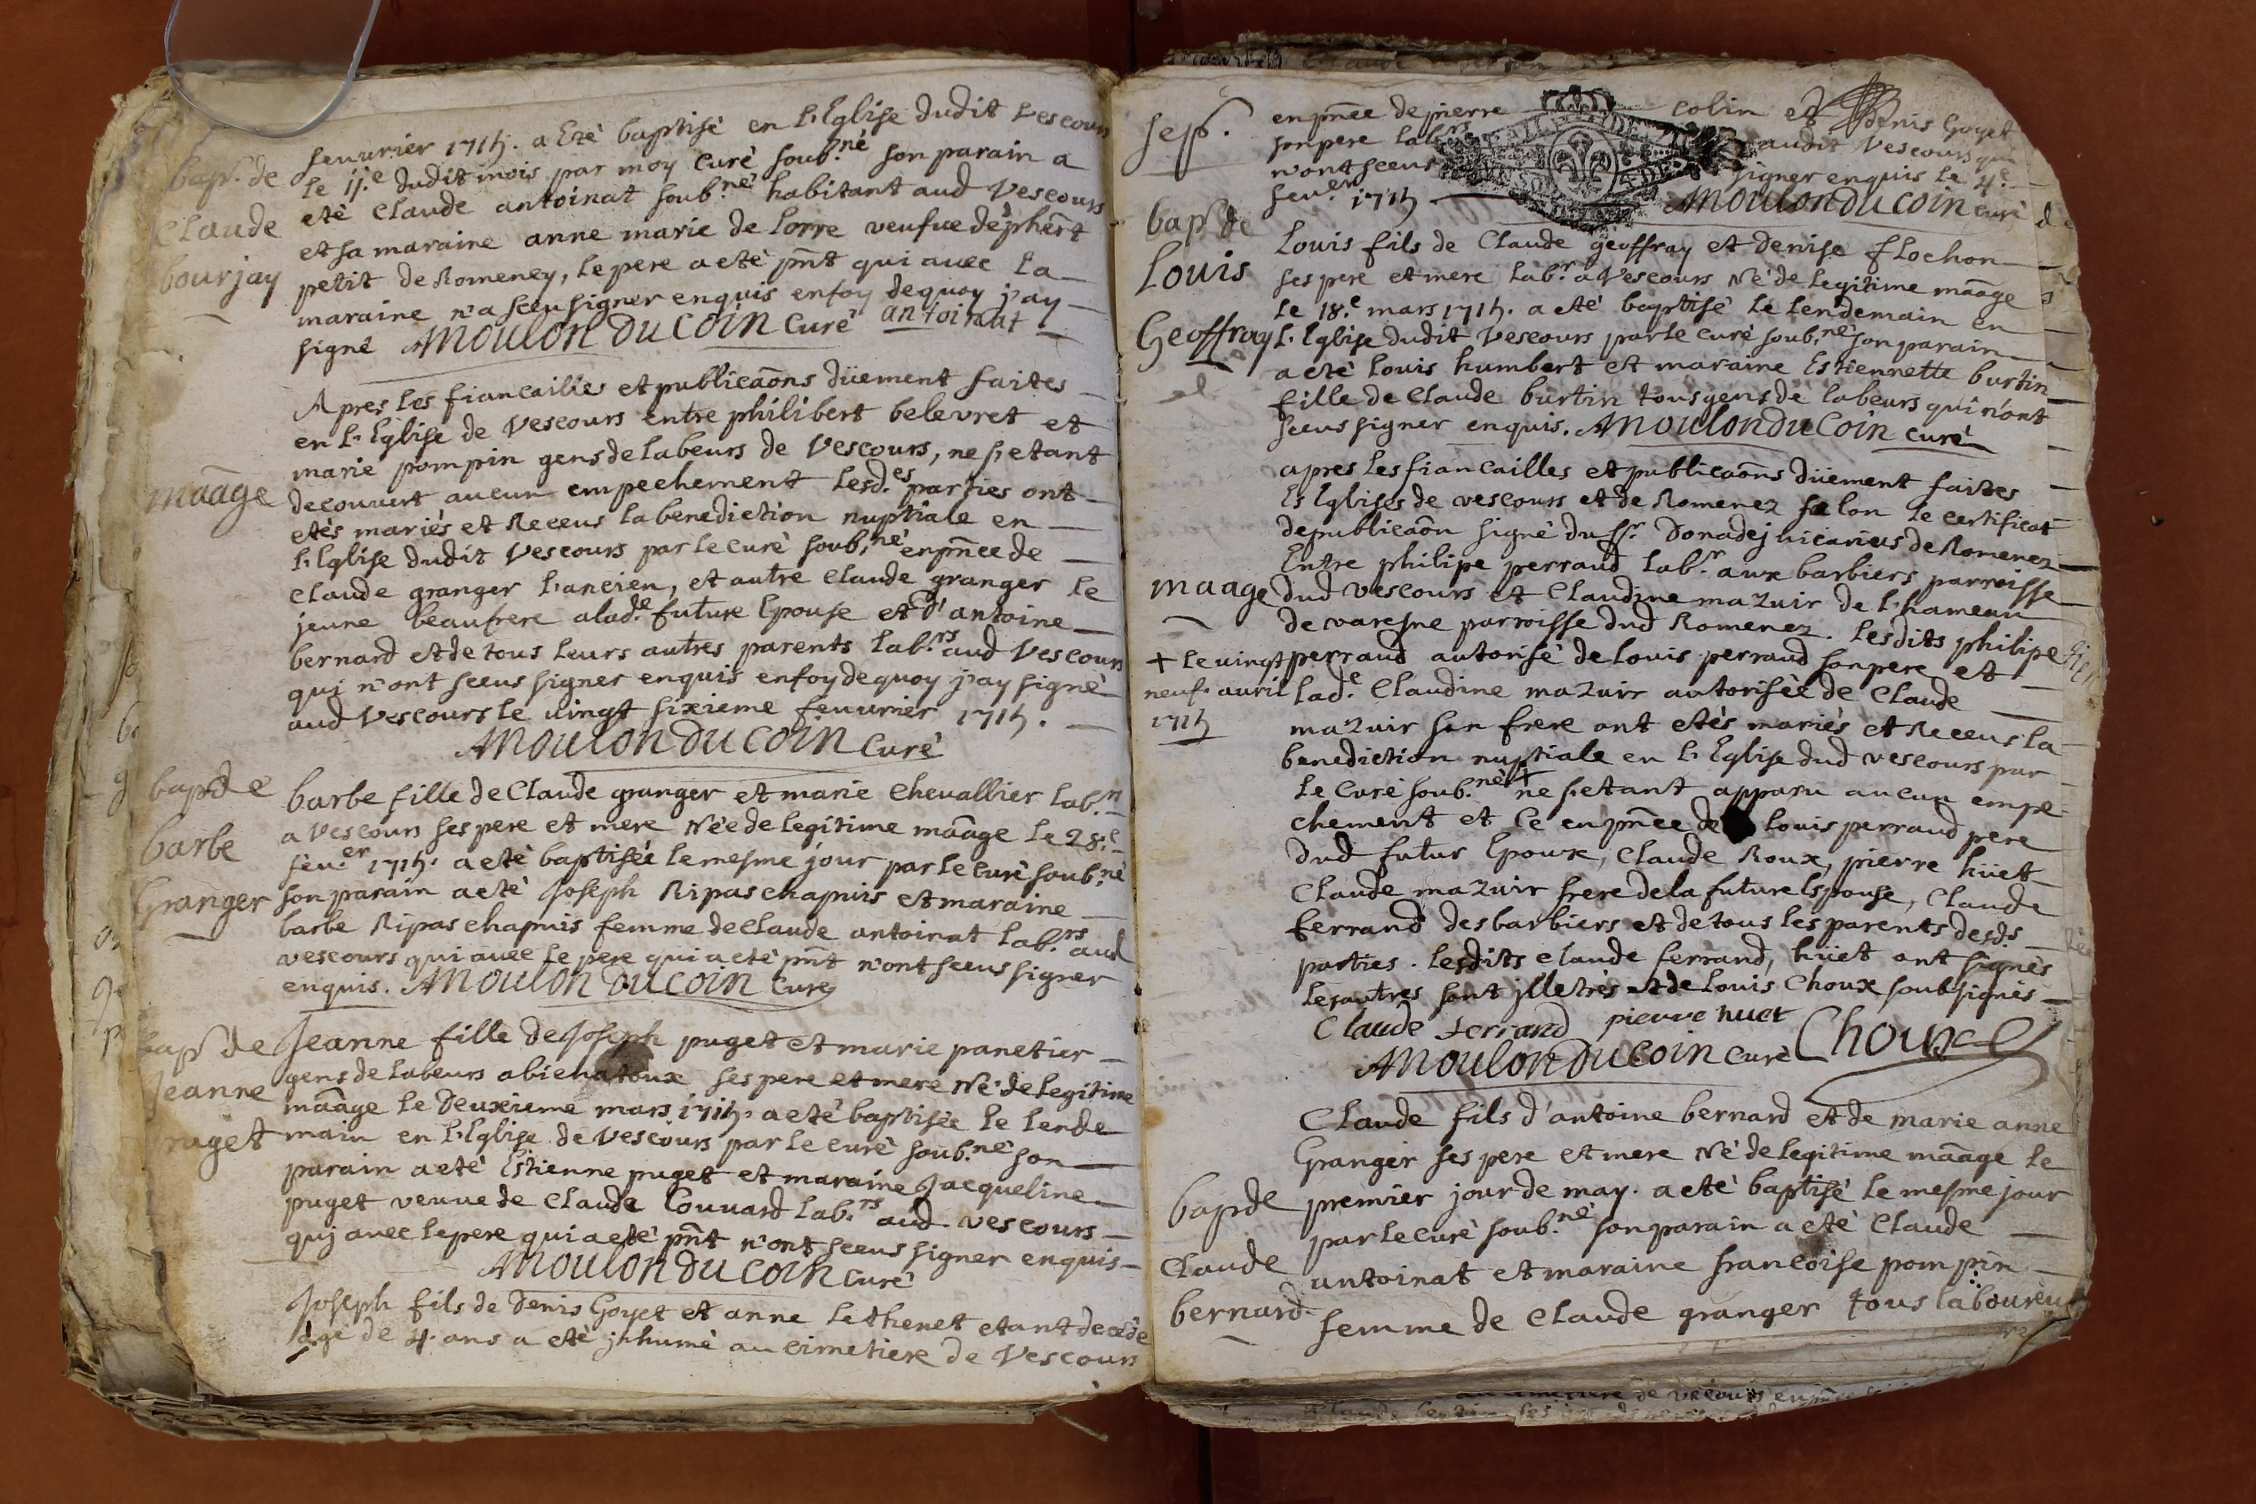 feuurier 1715. a Eté baptisé en L'Eglise dudit Vescours
bap.^s de
le 11.^e dudit mois par moy Curé soub.^né son parain a
Claude
eté Claude antoinat soub.^né habitant aud Vescours
et sa maraine anne marie de Lorre veufue de phert
bourjay
petit de Romeney, le pere a eté pnt qui auec la
maraine n'a sceu signer enquis en foy dequoy j'ay
signé Moulon Du Coin Curé antoinat
Apres les fiancailles et publicaõns düement faites
en L'Eglise de Vescours entre philibert belevret et
marie pompin gens de labeurs de Vescours, ne s'etant
maãge
decouvert aucun empechement lesd.^es parties ont
etés mariés et Receus la benediction nuptiale en
L'Eglise dudit Vescours par le curé soub.^né en pñce de
claude granger L'ancien, et autre claude granger le
jeune beaufrere a lad.^e future Epouse et d'antoine
bernard et de tous leurs autres parents lab.^rs aud Vescours
qui n'ont sceus signer enquis en foy de quoy j'ay signé
aud Vescours le vingt sixieme feuurier 1715.
Moulon Du Coin Curé
bap de
barbe fille de Claude granger et marie chevallier lab.^rs
a Vescours ses pere et mere Née de legitime maãge le 28.^e
barbe
féu.^er 1715. a eté baptisée le mesme jour par le curé soub.^né
Granger
son parain a eté Joseph Ripas chapuis et maraine
barbe Ripas chapuis femme de claude antoinat lab.^rs aud
vescours qui auec le pere qui a eté pnt n'ont sceus signer
enquis. Moulon Du Coin Curé
bap^s de
Jeanne fille de Joseph puget et marie panetier
gens de labeurs a ses pere et mere Né de legitime
Jeanne
maãge le Deuxieme mars 1715. a eté baptisée le lende
puget
main en L'Eglise de Vescours par le curé soub.^né son
parain a eté Estienne puget et maraine Jacqueline
puget veuve de claude Couvard lab.^rs aud vescours
quj auec le pere qui a eté pnt n'ont sceus signer enquis
Moulon Du Coin Curé
Joseph fils de Denis Goyet et anne lethenet etant decedé
agé de 4. ans a eté jnhumé au cimetiere de Vescours
sep.
en pñce de pierre colin et denis Goyet
son pere lab^rs audit Vescours qui
n'ont sceus signer enquis le 4.^e
feu.^er 1715 Moulon Du Coin curé
bap^s de
Louis fils de Claude geoffray et Denise flochon
Louis
ses pere et mere lab.^r a Vescours Né de legitime maãge
le 18.^e mars 1715. a eté baptisé le lendemain en
Geoffray
L'Eglise dudit Vescours par le curé soub.^né son parain
a eté Louis humbert et maraine Estiennette burtin
fille de Claude burtin tous gens de labeurs qui n'ont
sceus signer enquis. Moulon Du Coin curé
apres les fiancailles et publicaõns düement faites
Es Eglises de vescours et de Romenez selon le certificat
de publicaõn signé du s^r. Donadej vicarius de Romenez
Entre philipe perraud lab.^r aux barbiers parroisse
maage
dud vescours et Claudine mazuir de L'hameau
de varesne parroisse dud Romenez. Lesdits philipe
+ le vingt
perraud autorisé de Louis perraud son pere et
neuf. avril
lad.^e Claudine mazuir autorisée de Claude
1715
mazuir son frere ont etés mariés et Receus la
benediction nuptiale en L'Eglise dud vescours par
le Curé soub.^né + ne s'etant apparu aucun empe
chement et ce en pñce de Louis perraud pere
dud futur Epoux, Claude Roux, pierre hüet
Claude mazuir frere de la future Espouse, Claude
ferrand des barbiers et de tous les parents desd.^s
parties. lesdits claude ferrand, hüet ont signés
les autres sont jlletrés et de Louis Choux soubsignés
Claude ferrand pierre huet
Moulon Du Coin Curé Choux
Claude fils d'antoine bernard et de marie anne
Granger ses pere et mere Né de legitime maãge le
bap de
premier jour de may. a eté baptisé le mesme jour
par le curé soub.^né son parain a eté Claude
Claude
antoinat et maraine francoise pompin
bernard.
femme de Claude granger tous laboureu